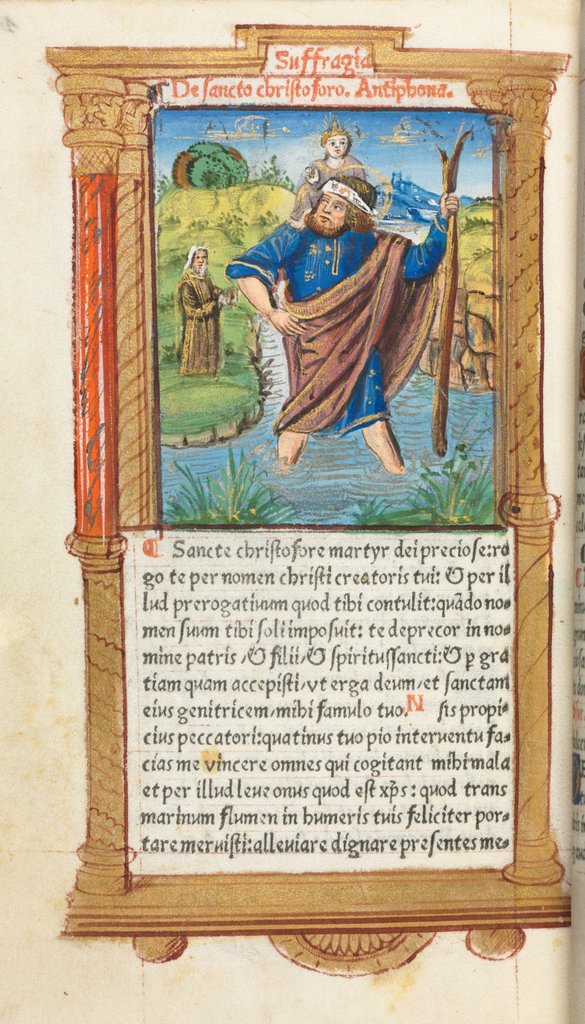 Suffragia
De sancto christoforo. Antiphona.
Sancte christofore martyr dei preciose: ro
go te per nomen christi creatoris tui: & per il
lud prerogatiuum quod tibi contulit: quãdo no-
men suum tibi soli imposuit: te deprecor in no-
mine patris / & filii / & spiritussancti: & ꝑ gra
tiam quam accepisti / vt erga deum / et sanctam
eius genitricem / mihi famulo tuo. N sis propi-
cius peccatori: quatinus tuo pio interuentu fa-
cias me vincere omnes qui cogitant mihi mala
et per illud leue onus quod est xp̃s : quod trans
marinum flumen in humeris tuis feliciter por-
tare meruisti: alleuiare dignare presentes me-